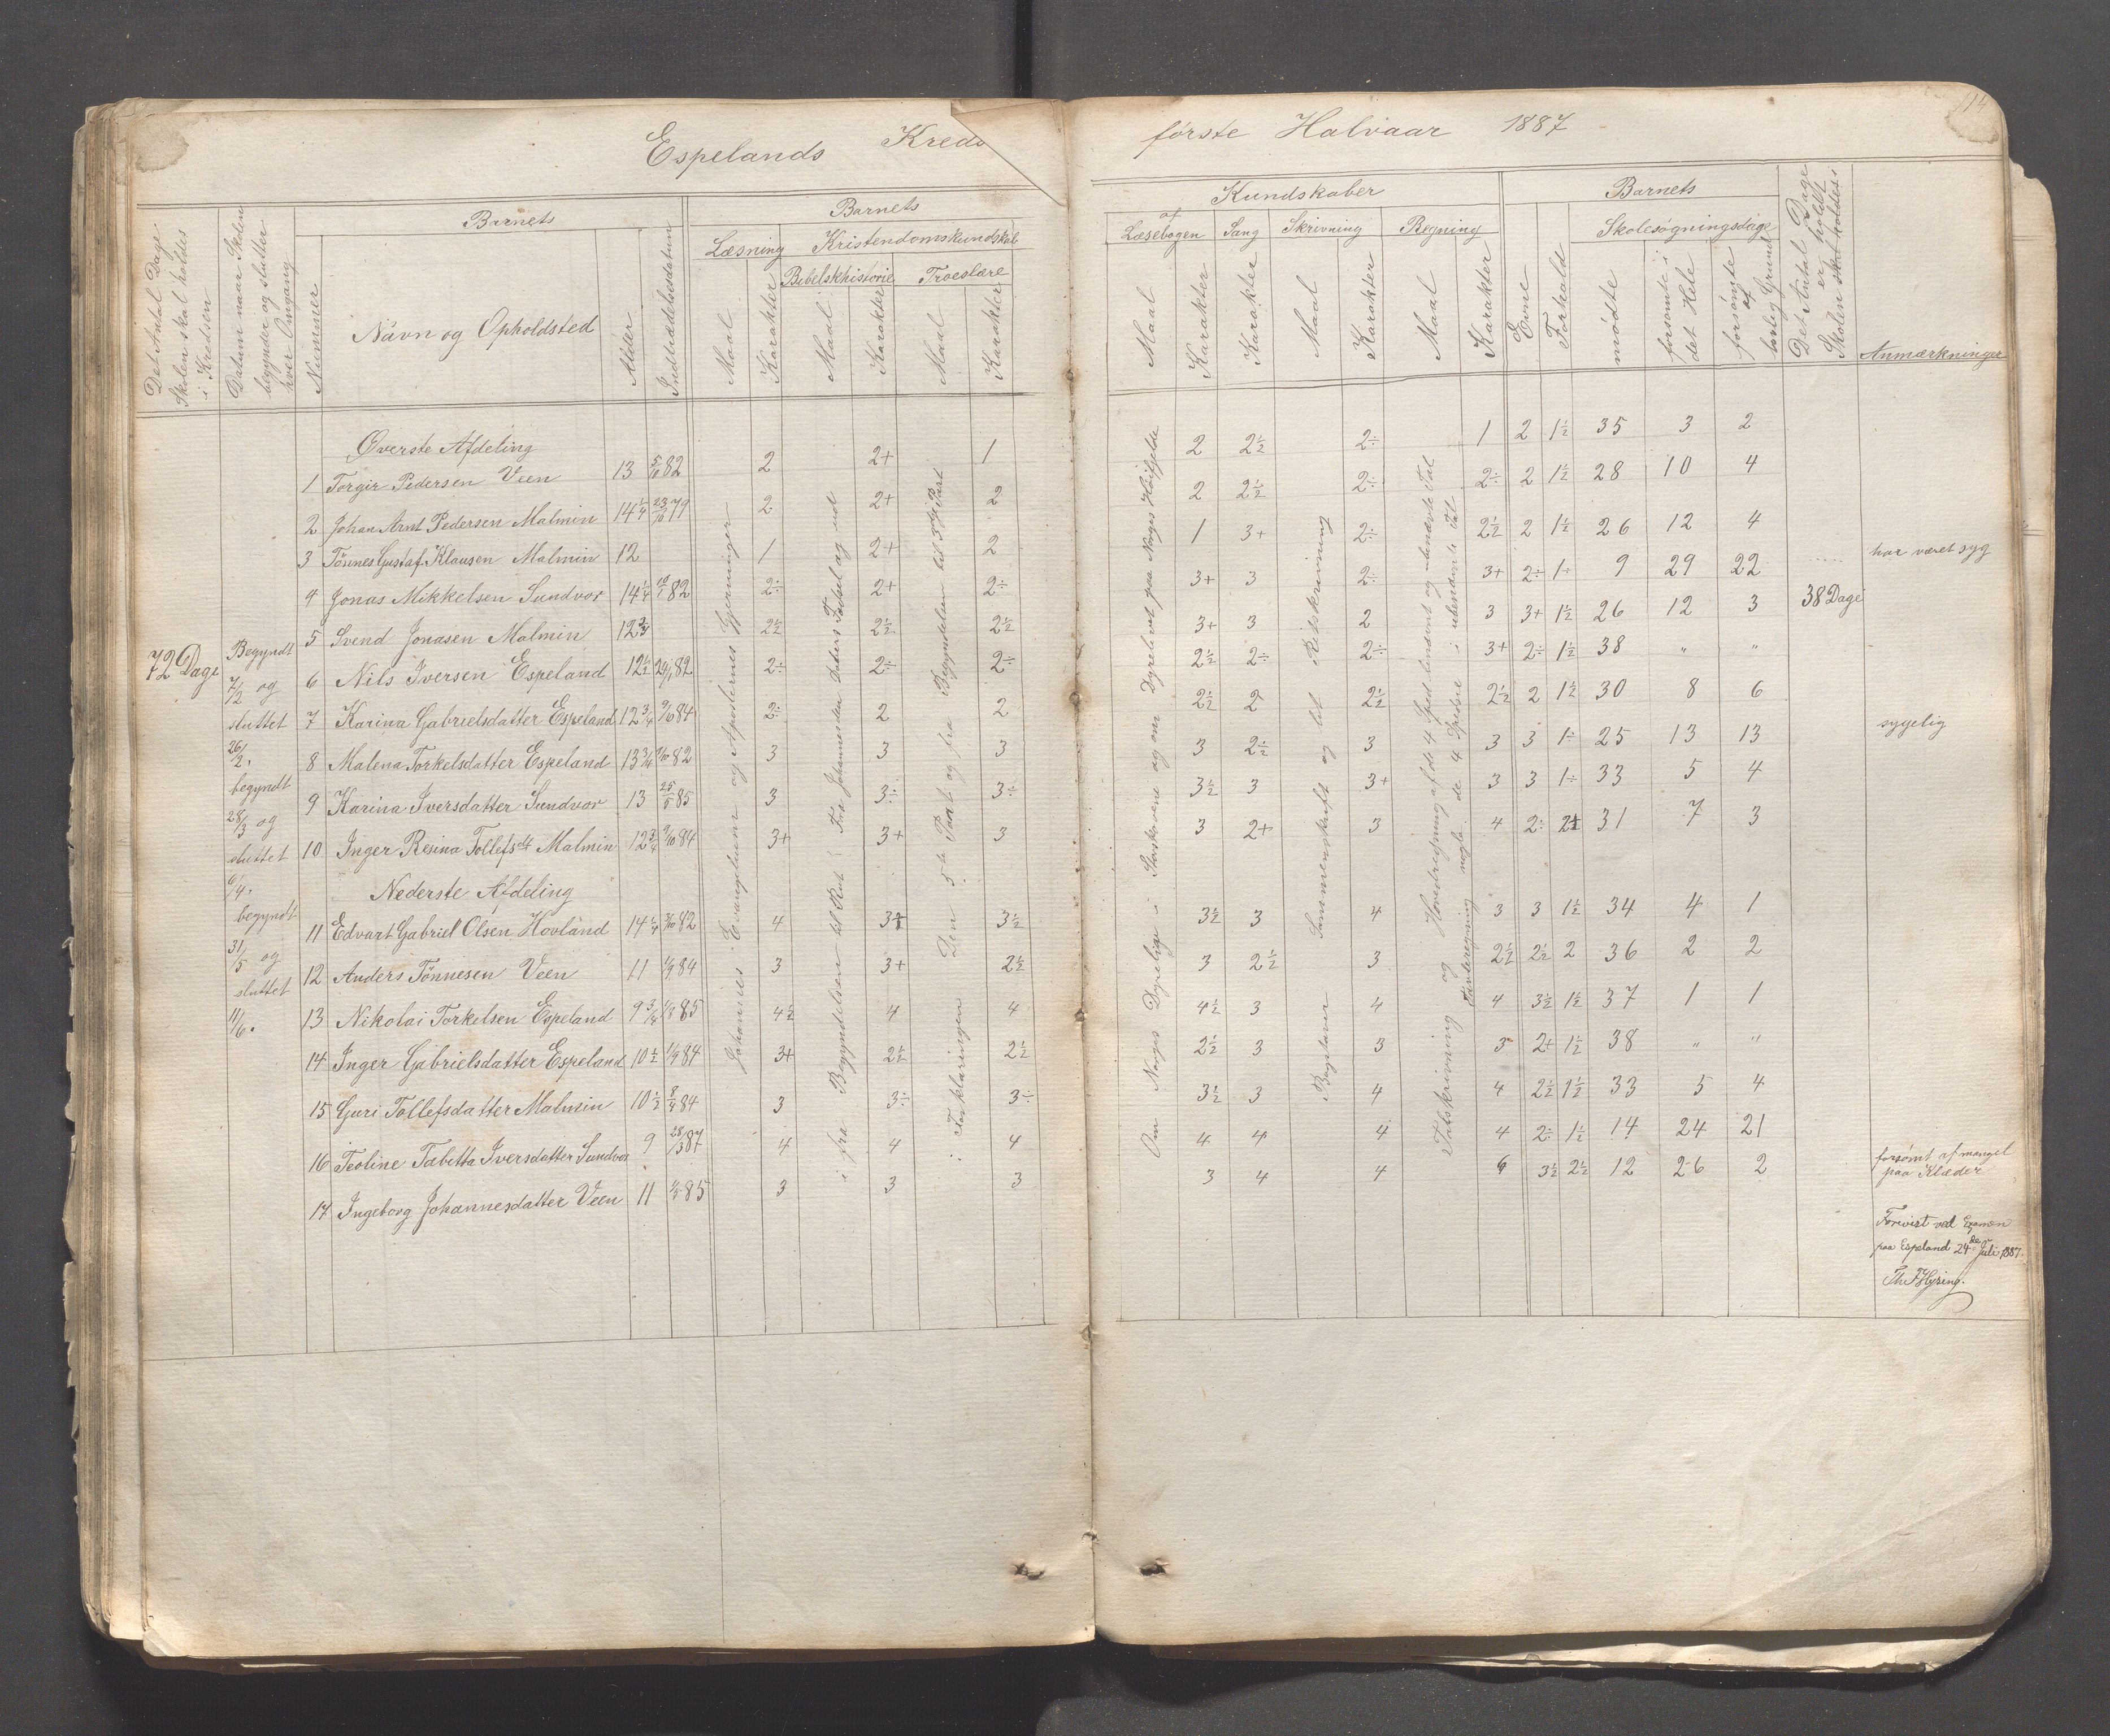 14
Espelands Kreds
første Halvaar 1887
Det Antal Dage Skolen skal holdes i Kredsen
Datum naar Skolen begynder og slutter hver Omgang
Barnets
Nummer
Navn og Opholdsted
Alder
Indtrædelsesdatum
Barnets
Læsning
Maal
Karakter
Kristendomskundskab
Bibelskhistorie
Maal
Karakter
Troeslære
Maal
Karakter
Kundskaber
Læsebogen
Maal
Karakter
Sang
Karakter
Skrivning
Maal
Karakter
Regning
Maal
Karakter
Barnets
Evne
Forhold
Skolesøgningsdage
mødte
forsømte i det Hele
forsømte af lovlig Grund
Det Antal Dage Skolen er holdt
Anmærkninger
72 Dage
Begyndt 7/2 og sluttet 26/2, begyndt 28/3 og sluttet 6/4, begyndt 31/5 og sluttet 11/6.
Johannes Evangelium og Apostlernes Gjerninger
Øverste Afdeling
1 Torgir Pedersen Veen 13 5/10 82 2 2+ 1 2 2½ 2÷ 1 2 1½ 35 3 2
2 Johan Arnt Pedersen Malmin 14¼ 23/10 79 2 2+ 2 2 2½ 2÷ 2÷ 2 1½ 28 10 4
3 Tönnes Gustaf Klausen Malmin 12 1 2+ 2 1 3+ 2÷ 2½ 2 1½ 26 12 4
4 Jonas Mikkelsen Sundvor 14¼ 10/1 82 2÷ 2+ 2÷ 3+ 3 2÷ 3+ 2÷ 1÷ 9 29 22 har været syg
5 Svend Jonasen Malmin 12¾ 2½ 2½ 2½ 3+ 3 2 3 3+ 1½ 26 12 3 38 Dage
6 Nils Iversen Espeland 12½ 29/1 82 2÷ 2÷ 2÷ 2½ 2÷ 2÷ 3+ 2÷ 1½ 38 " "
7 Karina Gabrielsdatter Espeland 12¾ 9/10 84 2÷ 2 2 2½ 2 2½ 2½ 2 1½ 30 8 6
8 Malena Torkelsdatter Espeland 13¾ 82 3 3 3 3 2½ 3 3 3 1÷ 25 13 13 sygelig
9 Karina Iversdatter Sundvor 13 25/5 85 3 3÷ 3÷ 3½ 3 3+ 3 3 1÷ 33 5 4
10 Inger Resina Tollefsdt Malmin 12¾ 9/10 84 3+ 3+ 3 3 2+ 3 4 2÷ 31 7 3
Nederste Afdeling
11 Edvart Gabriel Olsen Hovland 14¼ 82 4 3+ 3½ 3½ 3 4 3 3 1½ 34 4 1
12 Anders Tönnesen Veen 11 84 3 3+ 2½ 3 2½ 3 2½ 2½ 2 36 2 2
13 Nikolai Torkelsen Espeland 9¾ 85 4½ 4 4 4½ 3 4 4 3½ 1½ 37 1 1
14 Inger Gabrielsdatter Espeland 10½ 84 3+ 2½ 2½ 2½ 3 3 3 2+ 1½ 38 " "
15 Guri Tollefsdatter Malmin 10½ 84 3 3÷ 3÷ 3½ 3 4 4 2½ 1½ 33 5 4
16 Teoline Tabitta Iversdatter Sundvor 9 28/3 87 4 4 4 4 4 4 4 2÷ 1½ 14 24 21 forsømt af mangel paa Klæder
17 Ingeborg Johannesdatter Veen 11 85 3 3 3 3 4 4 6 3½ 2½ 12 26 2
Forevist ved Examen
paa Espeland 24de Juli 1887.